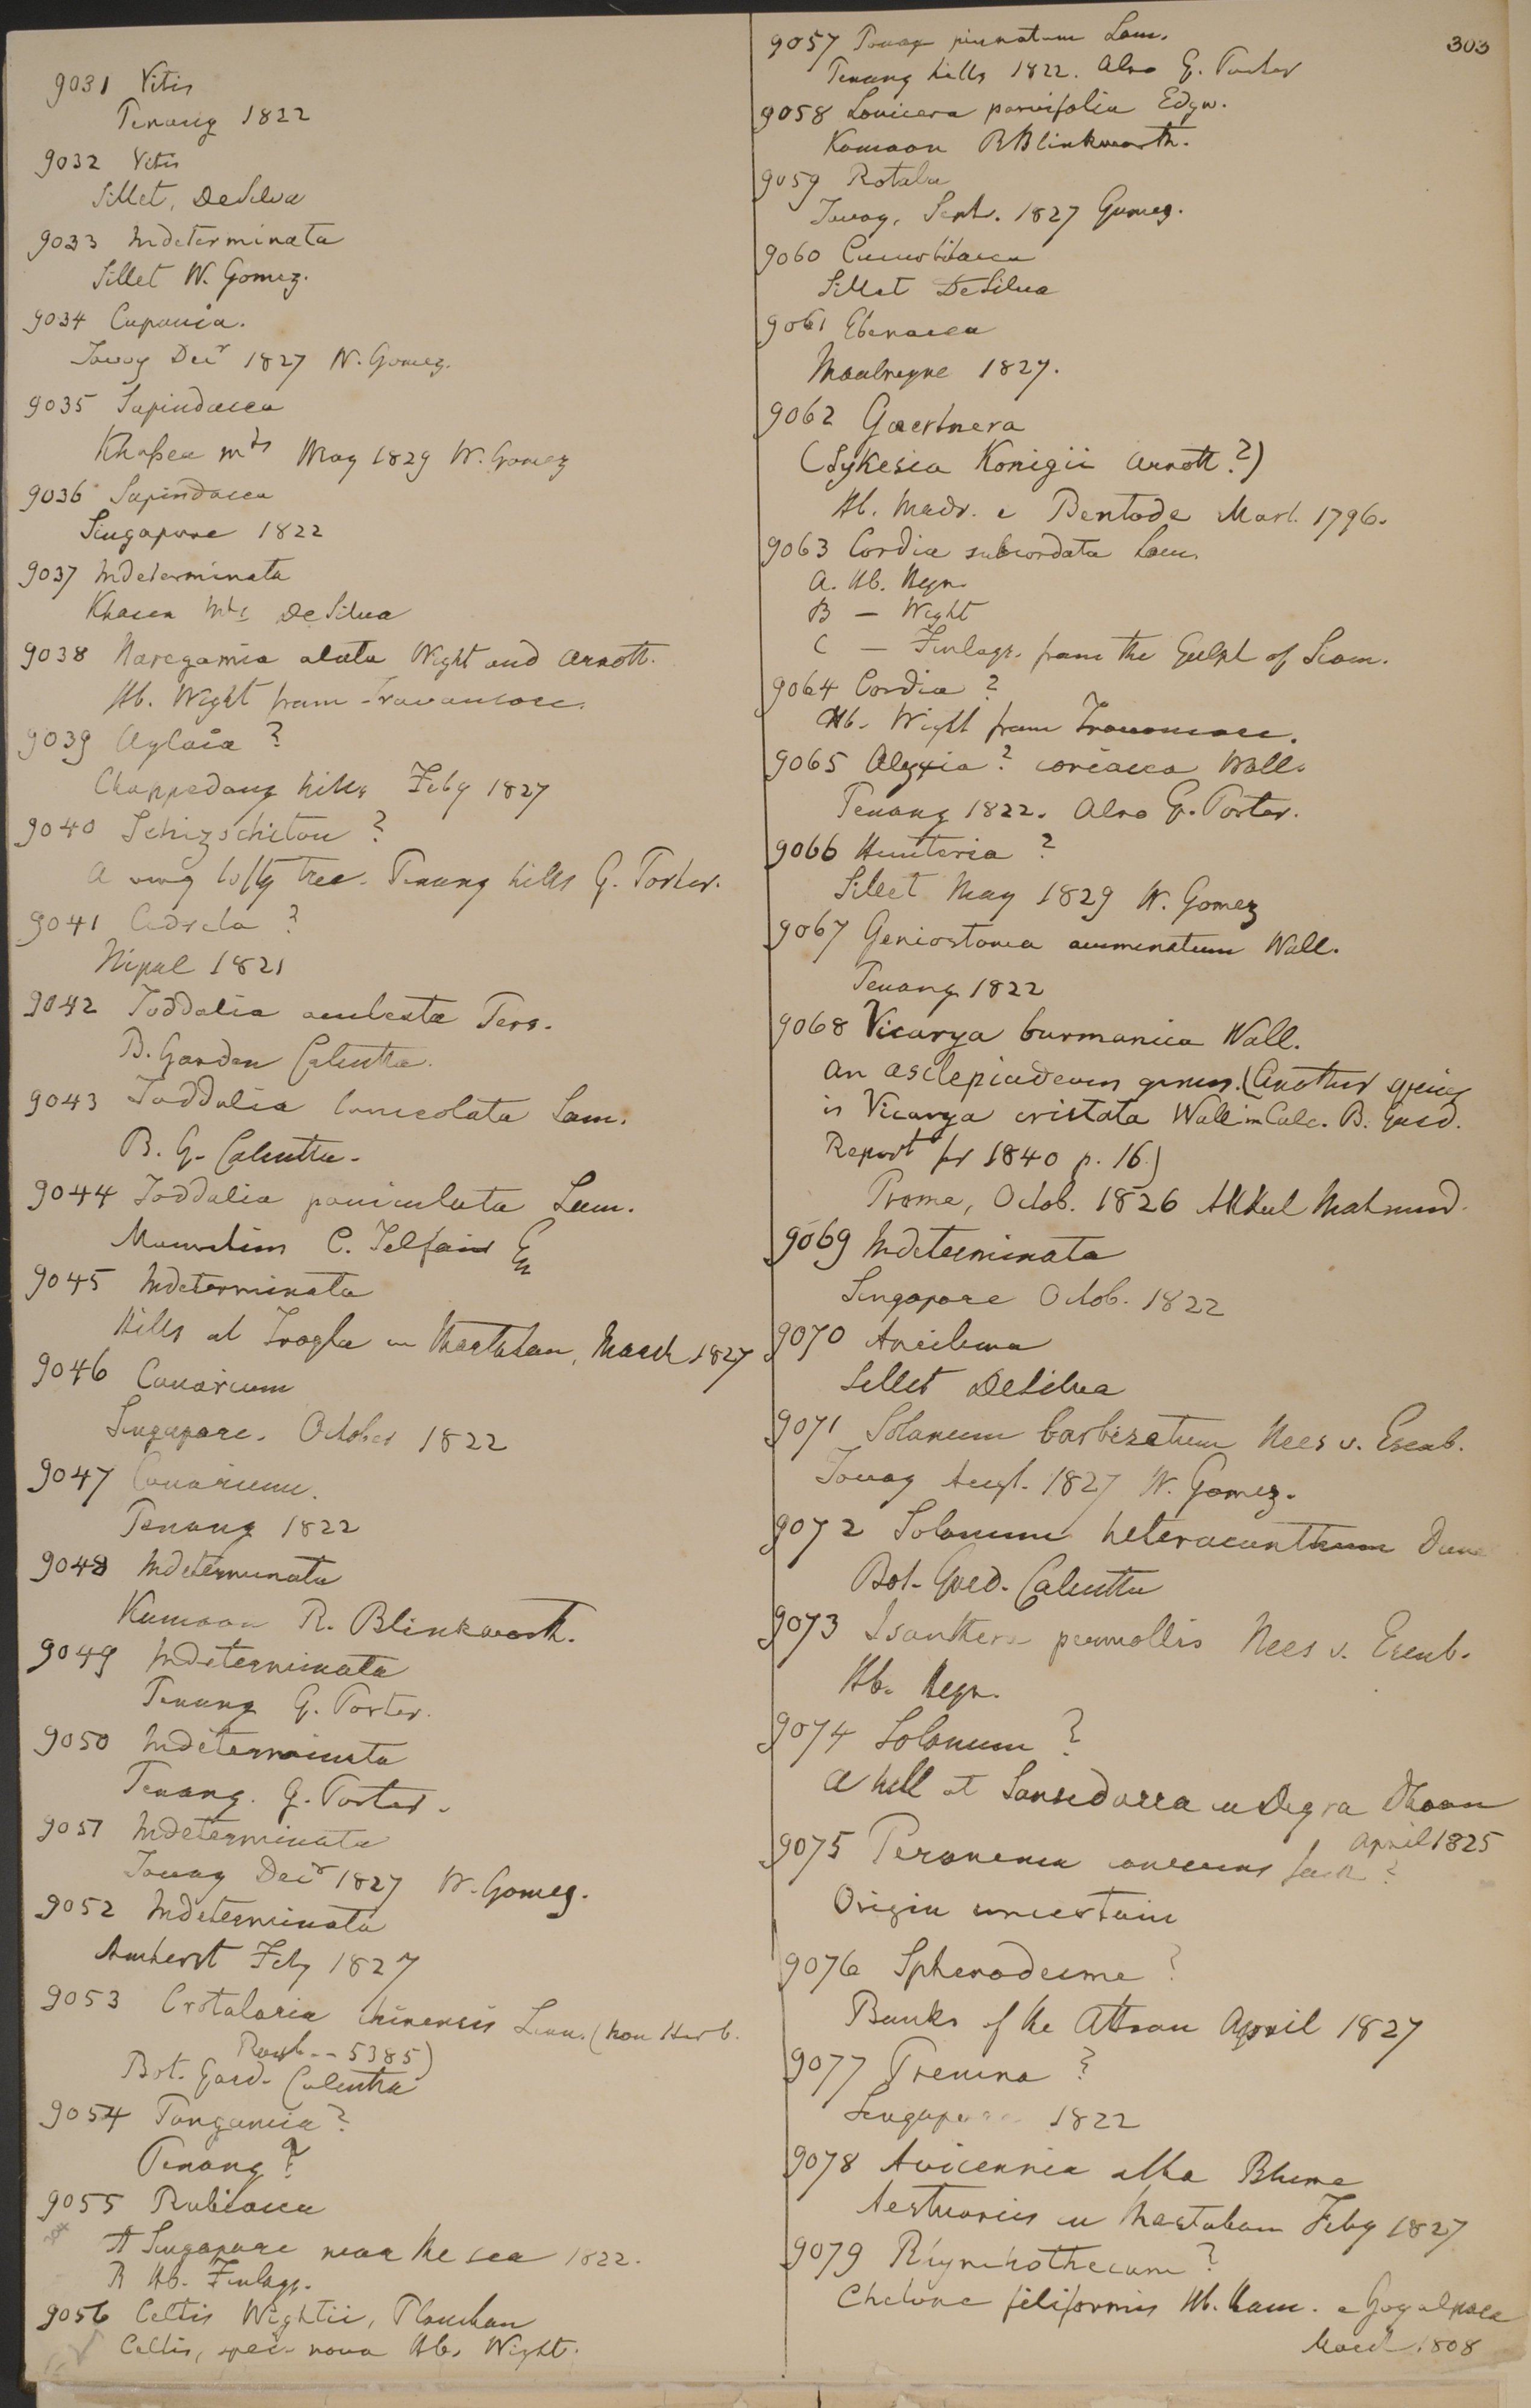 303
9031 Vitis
Penang 1822
9032 Vitis
Sillet, DeSilva
9033 Indeterminata
Sillet W. Gomez.
9034 Cupania.
Tavoy Decr 1827 W. Gomez.
9035 Sapindacea
Khaſsea mts May 1829 W. Gomez
9036 Sapindacea
Singapore 1822
9037 Indeterminata
Khasea Mts DeSilva
9038 Naregamia alata Wight and Arnott.
Hb. Wight from Travancore.
9039 Aglaia ?
Chappedong hills Feby 1827
9040 Schizochiton ?
A very lofty tree. Penang hills G. Porter.
9041 Cedrela ?
Nipal 1821
9042 Toddalia aculeata Pers.
B. Garden Calcutta.
9043 Toddalia lanceolata Lam.
B. G. Calcutta.
9044 Toddalia paniculata Lam.
Mauritius C. Telfair
9045 Indeterminata
Hills at Trogla in Martaban, March 1827
9046 Canarium
Singapore. October 1822
9047 Canarium.
Penang 1822
9048 Indeterminata
Kumaon R. Blinkworth.
9049 Indeterminata
Penang G. Porter.
9050 Indeterminata
Penang. G. Porter.
9051 Indeterminata
Tavoy Decr 1827 W. Gomez.
9052 Indeterminata
Amherst Feby 1827
9053 Crotalaria chinensis Linn. (non Herb.
Roxb. -- 5385)
Bot. Gard. Calcutta
9054 Pongamia ?
Penang ?
9055 Rubiacea
A Singapore near the sea 1822.
B Hb. Finlays.
9056 Celtis Wightii, Planchon
Celtis, spec. nova Hb. Wight.
9057 pinnatum Lam.
Penang hills 1822. Also G. Porter
9058 Lonicera parvifolia Edgw.
Kamaon R Blinkworth.
9059 Rotala
Tavoy, Sept. 1827 Gomez.
9060 Cucurbitacea
Sillet DeSilva
9061 Ebenacea
Moalmeyne 1827.
9062 Gaertnera
(Sykesia Konigii Arnott ?)
Hb. Madr. e Bentode Mart. 1796.
9063 Cordia subcordata Lam.
A. Hb. Heyn.
B — Wight
C — Finlays. from the Gulph of Siam.
9064 Cordia ?
Hb. Wight from Travancore.
9065 Alyxia ? coriacea Wall.
Penang 1822. Also G. Porter.
9066 Hunteria ?
Sillet May 1829 W. Gomez
9067 Geniostoma acuminatum Wall.
Penang 1822
9068 Vicarya burmanica Wall.
An asclepiadeous genus. (Another species
is Vicarya cristata Wall in Calc. B. Gard.
Report for 1840 p. 16.)
Prome, Octob. 1826 Mahmud.
9069 Indeterminata
Singapore Octob. 1822
9070 Aneilema
Sillet DeSilva
9071 Solanum barbisetum Nees v. Esenb.
Tavoy Augt. 1827 W. Gomez.
9072 Solanum heteracanthum Duna
Bot. Gard. Calcutta
9073 Isanthera permollis Nees v. Esenb.
Hb. Heyn.
9074 Solanum ?
A hill at Sansedarra in Degra Dhoon
April 1825
9075 Peronema canescens Jack ?
Origin uncertain
9076 Sphenodesme ?
Banks of the Attran April 1827
9077 Premna ?
Singapore 1822
9078 Avicennia alba Blume
Aestuariis in Martaban Feby 1827
9079 Rhynchothecum ?
Chelone filiformis Hb. Ham. e Goyalpara
March 1808